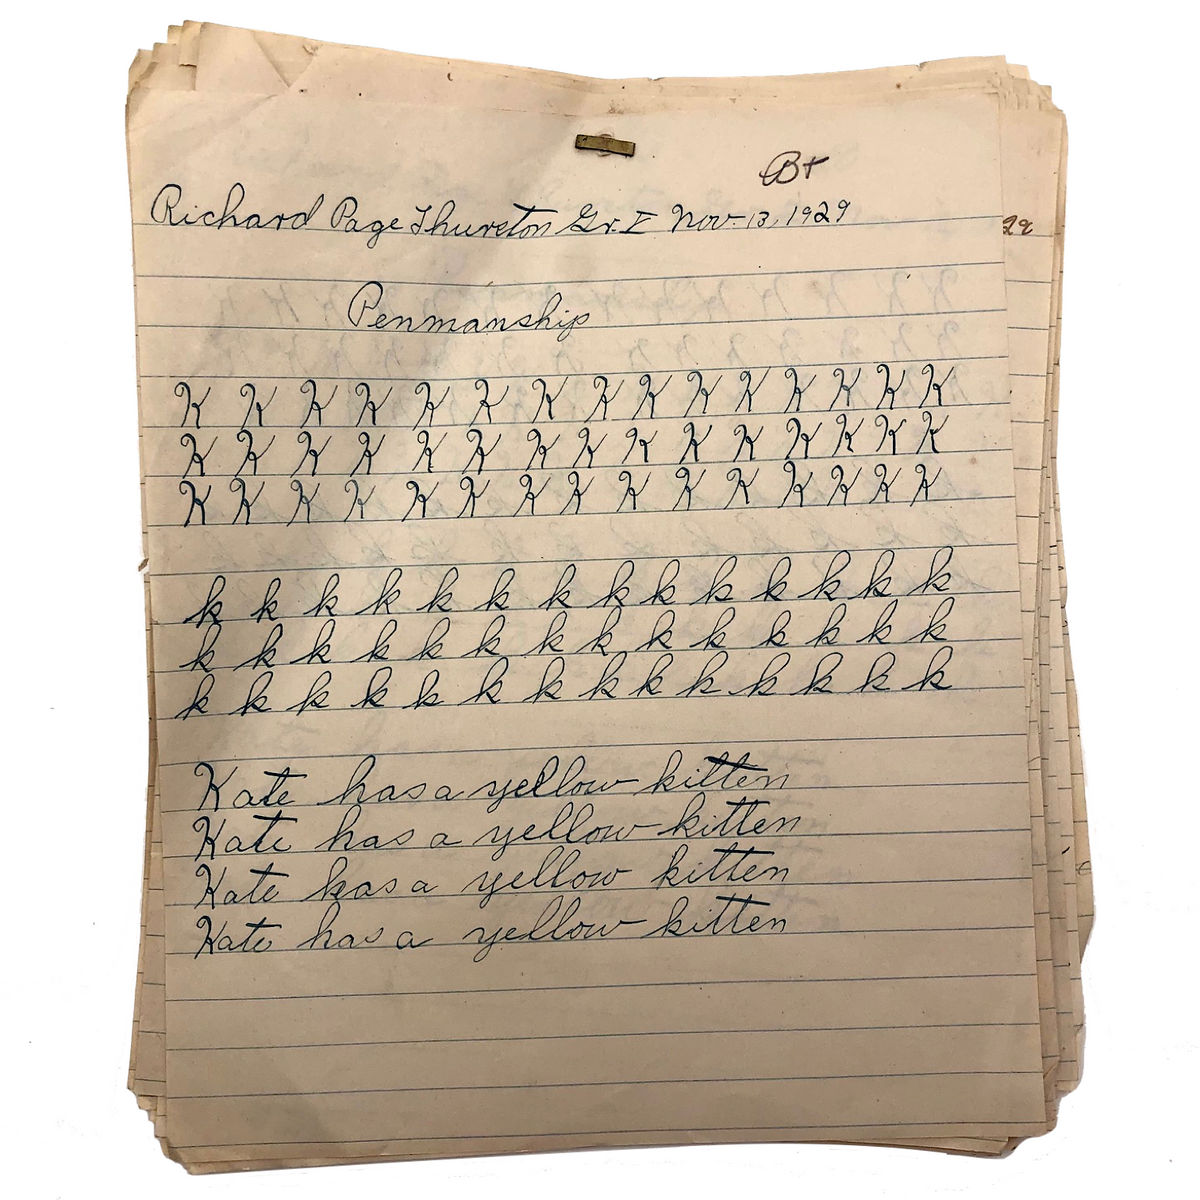 B+
Richard Page Thurston Gr. V Nov. 13, 1929
29
Penmanship
K K K K K K K K K K K K K K K
K K K K K K K K K K K K K K K
K K K K K K K K K K K K K K K
k k k k k k k k k k k k k k
k k k k k k k k k k k k k k
k k k k k k k k k k k k k k
Kate has a yellow kitten
Kate has a yellow kitten
Kate has a yellow kitten
Kate has a yellow kitten